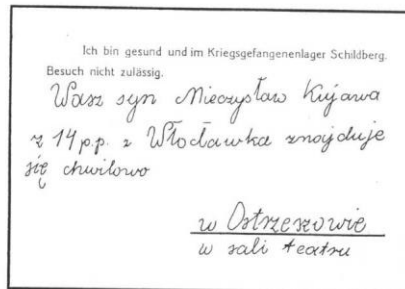 Ich bin gesund und im Kriegsgefangenenlager Schildberg.
Besuch nicht zulässig.
Wasz syn Mieczysław Kujawa
z 14 p.p. z Włocławka znajduje
się chwilowo
w Ostrzeszowie
w sali teatru